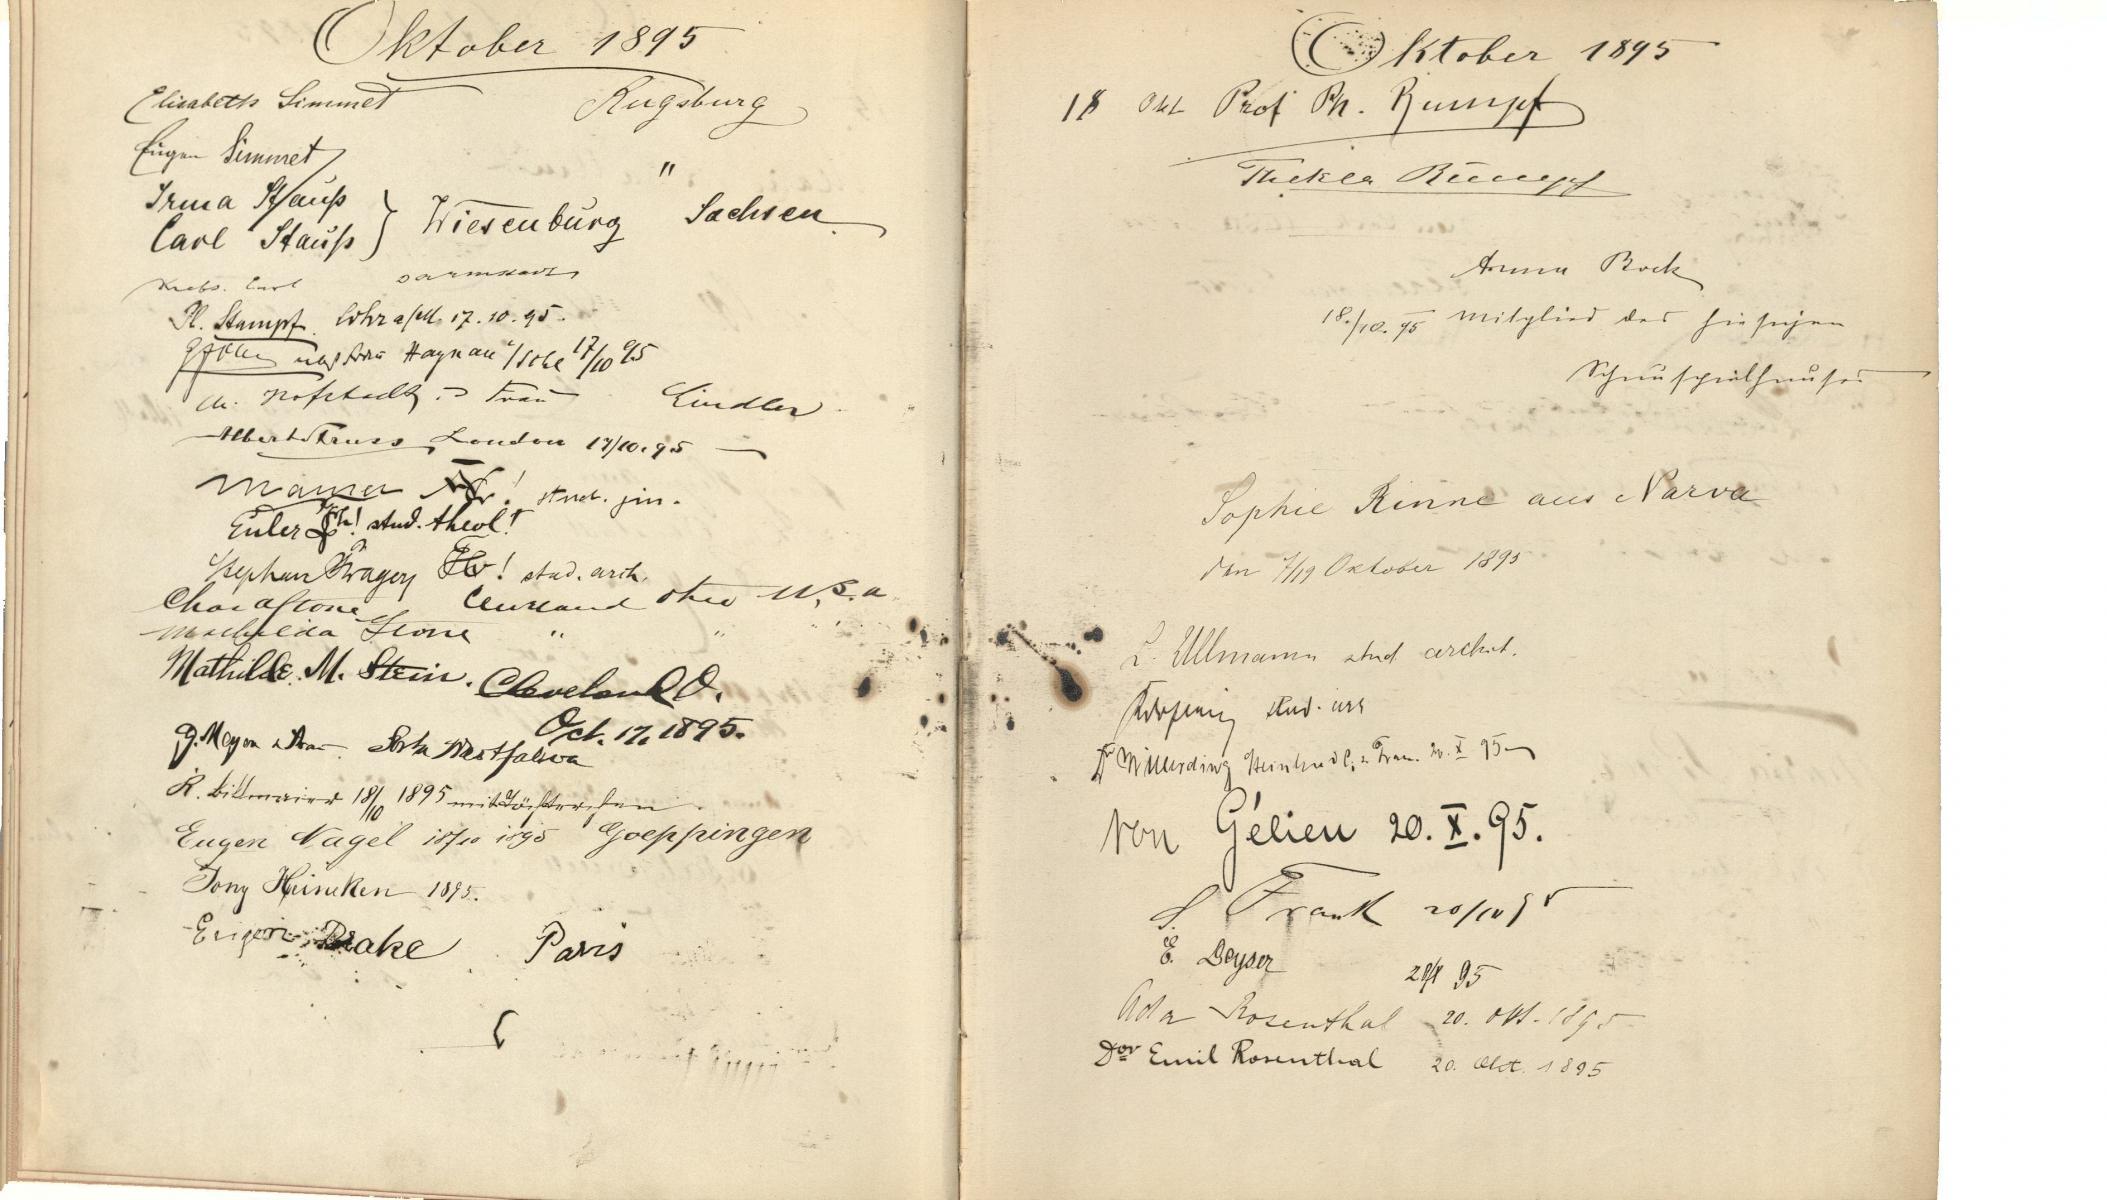 Oktober 1895
Elisabeth Simmet Augsburg
Eugen Simmet "
Irma Stauß
Carl Stauß } Wiesenburg Sachsen
Krebs. Carl Darmstadt
Stumpf Lohr a/M. 17.10.95.
Haynau 17/10 95
M. u Frau Lindler
Albert Struss London 17/10.95
stud. jur.
Euler stud. theol!
Stephan stud. arch.
Chas A Stone Cleveland Ohio U.S.A
Mathilda Stone " "
Mathilde. M. Stein. Cleveland O.
Oct. 17, 1895.
G. Meyer u Frau Westfalica
K. 18/10 1895 mit Töchterchen
Eugen Nagel 18/10 1895 Goeppingen
Tony Heineken 1895.
Drake Paris
Oktober 1895
18 Okt Prof Ph. Rumpf
Thekla Rumpf
Anna Rock
18./10. 95 Mitglied des hiesigen
Schauspielhauses
Sophie Rinne aus Narva
den 7/19 Oktober 1895
L. Ullmann stud archit.
stud.
Dr Willerding u Frau. 20. X 95
von Gélieu 20. X. 95.
S. Frank 20/10 95
E. Deyser 20/X 95
Ada Rosenthal 20. Okt. 1895
Dor Emil Rosenthal 20. Okt. 1895